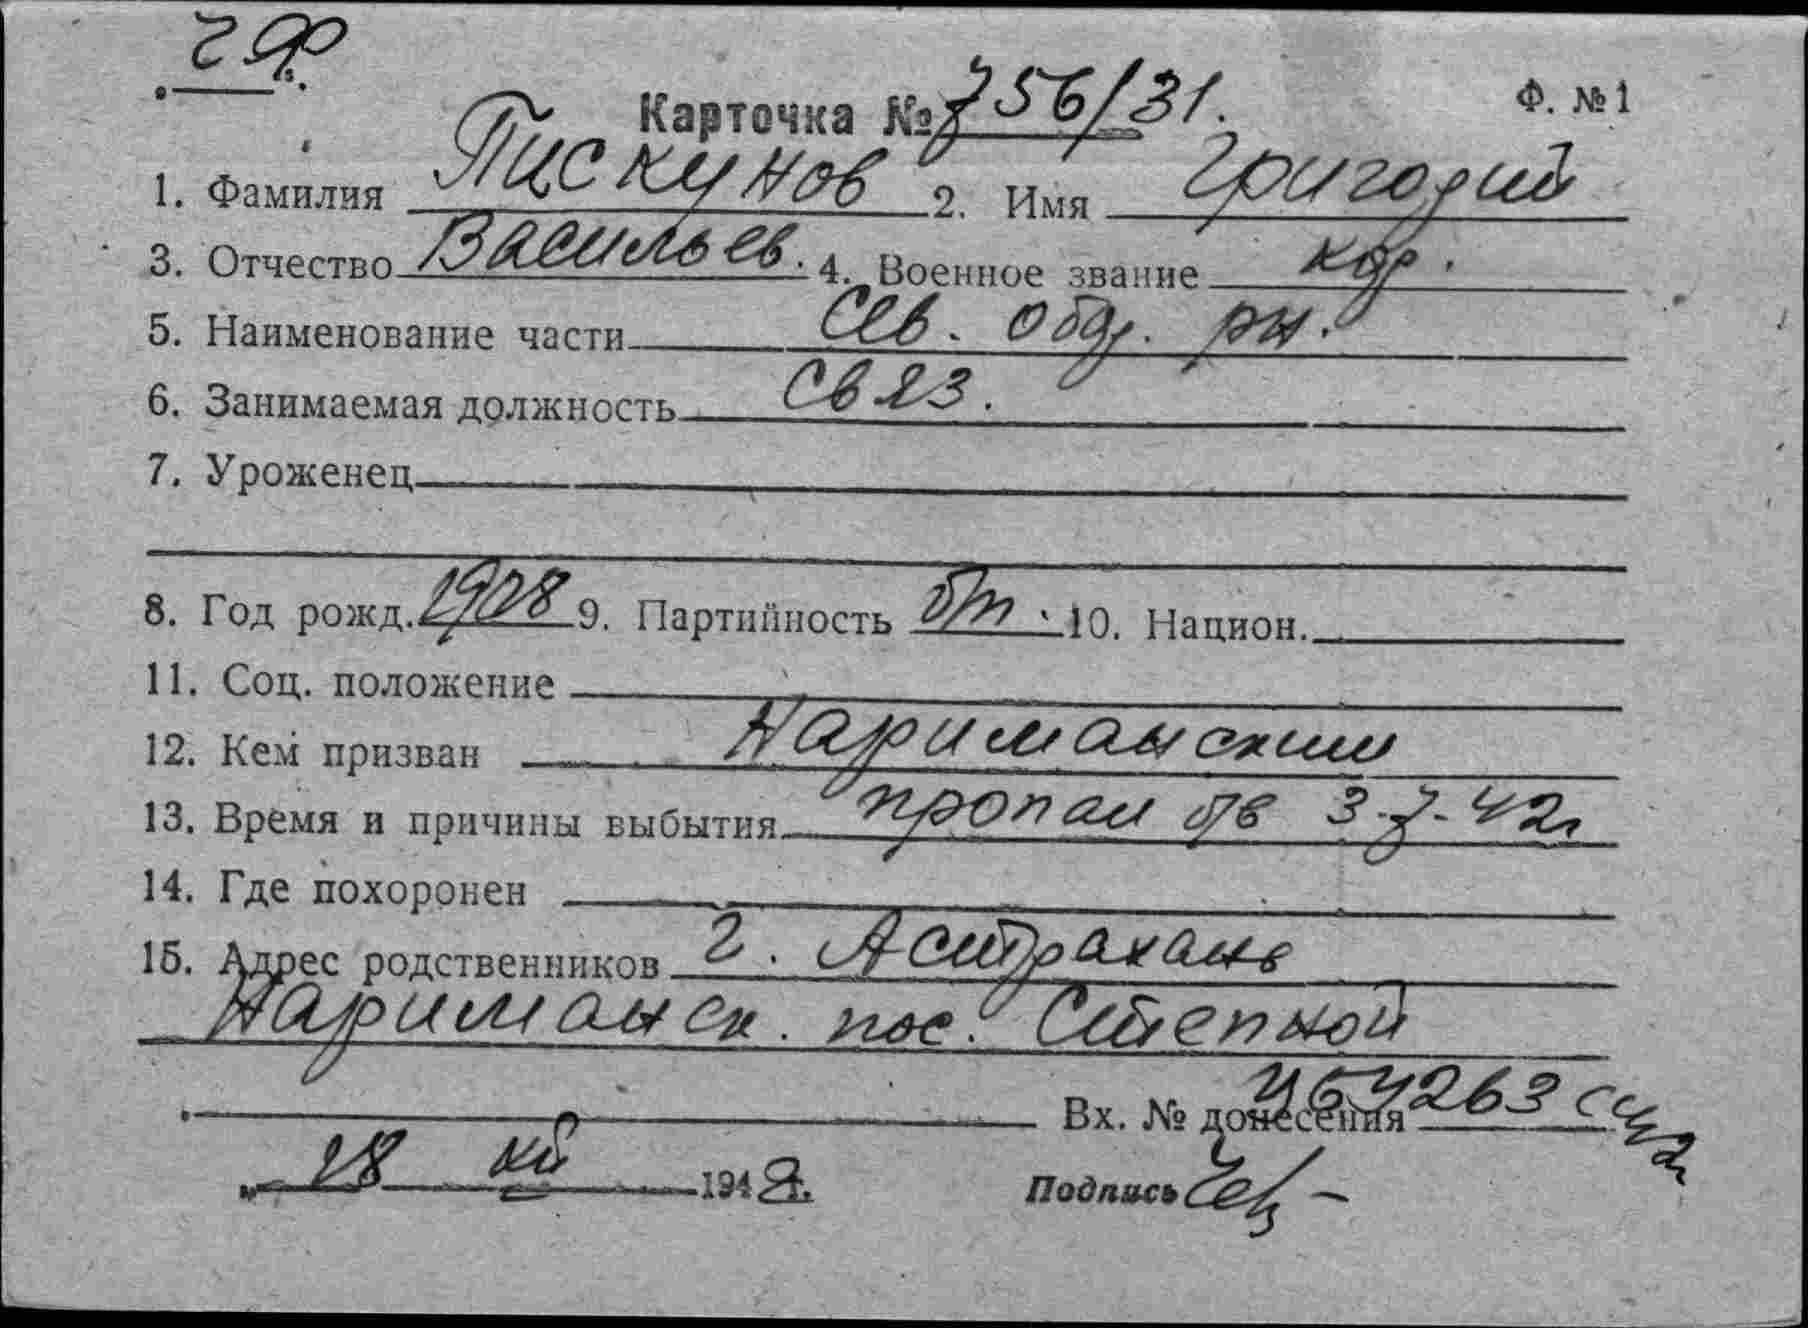 ЧФ
Карточка № 756/31. Ф. № 1
1. Фамилия Пискунов 2. Имя Григорий
3. Отчество Васильев. 4. Военное звание кр.
5. Наименование части Сев. обор. рн.
6. Занимаемая должность связ.
7. Уроженец
8. Год рожд. 1908 9. Партийность б/п. 10. Национ.
11. Соц. положение
12. Кем призван Нариманским
13. Время и причины выбытия пропал б/в 3.7.42г
14. Где похоронен
15. Адрес родственников г. Астрахань
Нариманск. пос. Степной
Вх. № донесения 263
28 194
Подпись